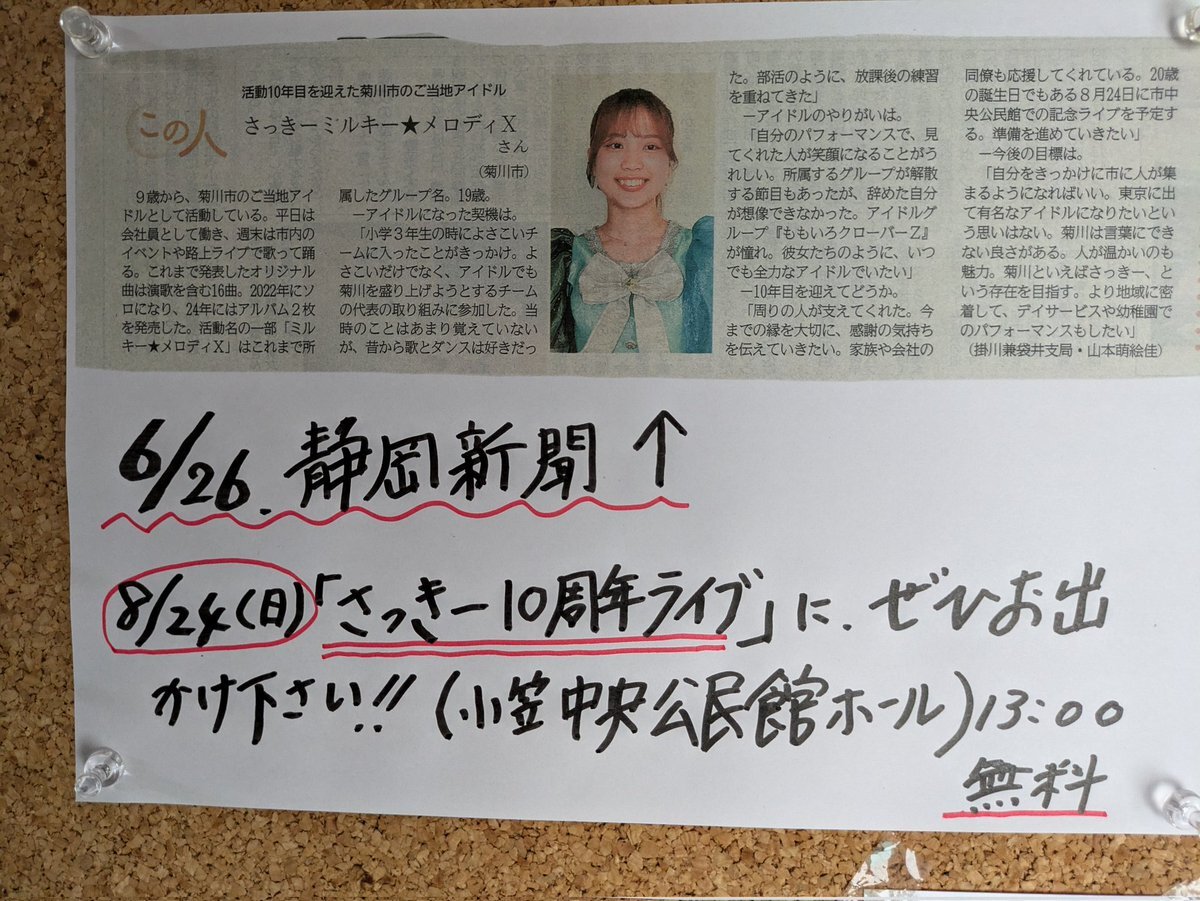 この人
活動10年目を迎えた菊川市のご当地アイドル
さっきーミルキー★メロディX
さん
(菊川市)
９歳から、菊川市のご当地アイ
ドルとして活動している。平日は
会社員として働き、週末は市内の
イベントや路上ライブで歌って踊
る。これまで発表したオリジナル
曲は演歌を含む16曲。2022年にソ
ロになり、24年にはアルバム２枚
を発売した。活動名の一部「ミル
キー★メロディX」はこれまで所
属したグループ名。19歳。
－アイドルになった契機は。
「小学３年生の時によさこいチー
ムに入ったことがきっかけ。よ
さこいだけでなく、アイドルでも
菊川を盛り上げようとするチーム
の代表の取り組みに参加した。当
時のことはあまり覚えていない
が、昔から歌とダンスは好きだっ
た。部活のように、放課後の練習
を重ねてきた」
－アイドルのやりがいは。
「自分のパフォーマンスで、見
てくれた人が笑顔になることがう
れしい。所属するグループが解散
する節目もあったが、辞めた自分
が想像できなかった。アイドルグ
ループ『ももいろクローバーＺ』
が憧れ。彼女たちのように、いつ
でも全力なアイドルでいたい」
－10年目を迎えてどうか。
「周りの人が支えてくれた。今
までの縁を大切に、感謝の気持ち
を伝えていきたい。家族や会社の
同僚も応援してくれている。20歳
の誕生日でもある８月24日に市中
央公民館での記念ライブを予定す
る。準備を進めていきたい」
－今後の目標は。
「自分をきっかけに市に人が集
まるようになればいい。東京に出
て有名なアイドルになりたいとい
う思いはない。菊川は言葉にでき
ない良さがある。人が温かいのも
魅力。菊川といえばさっきー、と
いう存在を目指す。より地域に密
着して、デイサービスや幼稚園で
のパフォーマンスもしたい」
(掛川兼袋井支局・山本萌絵佳)
6/26. 静岡新聞 ↑
8/24(日)「さっきー10周年ライブ」に. ぜひお出
かけ下さい!! (小笠中央公民館ホール) 13:00
無料